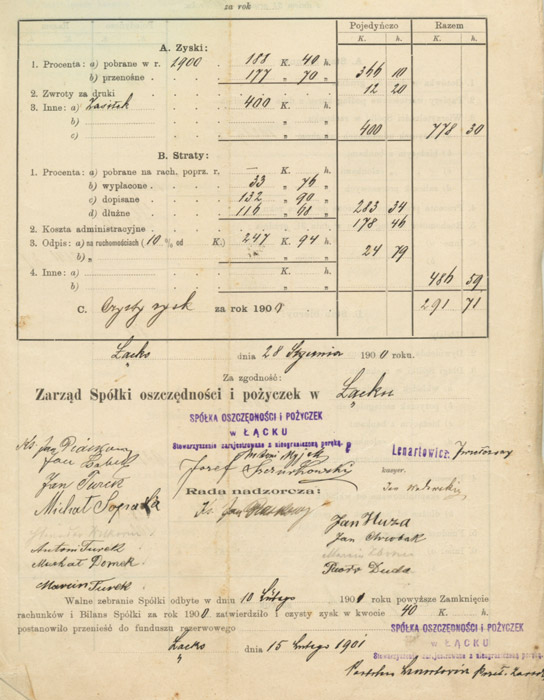 za rok
Pojedyńczo Razem
K. h. K. h.
A. Zyski:
1. Procenta: a) pobrane w r. 1900 188 K. 40 h.
b) przenośne 177 „ 70 „ 366 10
2. Zwroty za druki 12 20
3. Inne: a) Zasiłek 400 K. h.
b) „ „
c) „ „ 400 778 30
B. Straty:
1. Procenta: a) pobrane na rach. poprz. r. — K. h.
b) wypłacone 33 „ 76 „
c) dopisane 132 „ 90 „
d) dłużne 116 „ 68 „ 283 34
2. Koszta administracyjne 178 46
3. Odpis: a) na ruchomościach (10 % od K.) 247 K. 94 h.
b) „ „ „ 24 79
4. Inne: a) K. h.
b) „ „ 486 59
C. Czysty zysk za rok 1900 291 71
Łącko dnia 28 Stycznia 1900 roku.
Za zgodność:
Zarząd Spółki oszczędności i pożyczek w Łącku
SPÓŁKA OSZCZĘDNOŚCI I POŻYCZEK
w ŁĄCKU
Stowarzyszenie zarejestrowane z nieograniczoną poręką.
Ks. Jan Piaskowy
Lenartowicz
kasyer.
Józef
Jan Turek
Rada nadzorcza:
Michał
Ks. Jan Piaskowy
Jan Huza
Jan Chrobak
Antoni Turek
Michał Domek
Marcin
Piotr Duda
Marcin Turek
Walne zebranie Spółki odbyte w dniu 10 Lutego 1901 roku powyższe Zamknięcie
rachunków i Bilans Spółki za rok 1900 zatwierdziło i czysty zysk w kwocie 40 K. h.
postanowiło przenieść do funduszu rezerwowego
SPÓŁKA OSZCZĘDNOŚCI I POŻYCZEK
Łącko dnia 15 Lutego 1901
w ŁĄCKU
Stowarzyszenie zarejestrowane z nieograniczoną poręką.